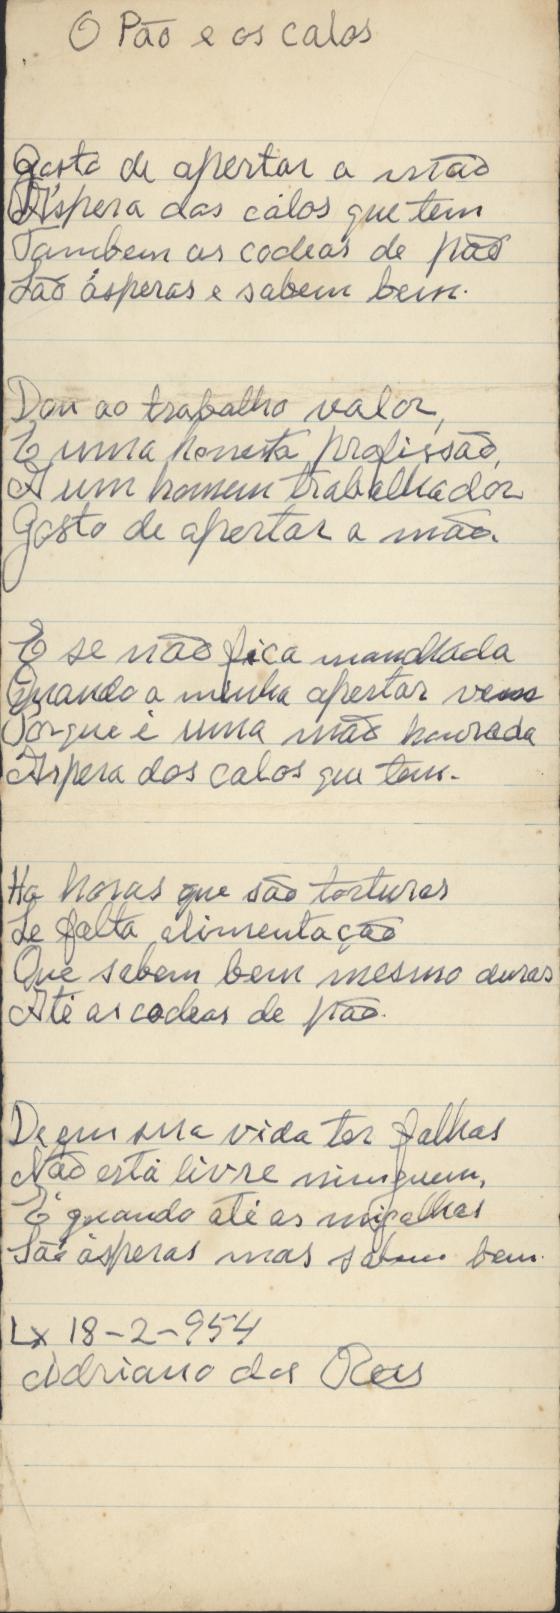 O Pão e os calos
Gosto de apertar a mão
Áspera dos calos que tem
Tambem as codeas de pão
São ásperas e sabem bem.
Dou ao trabalho valor,
É uma honesta profissão,
A um homem trabalhador
Gosto de apertar a mão.
E se não fica manchada
Quando a minha apertar vem
Porque é uma mão honrada
Aspera dos calos que tem.
Ha horas que são torturas
Se falta alimentação
Que sabem bem mesmo duras
Até as codeas de pão.
De em sua vida ter falhas
Não está livre ninguem,
É quando até as migalhas
São ásperas mas sabem bem.
Lx 18-2-954
Adriano dos Reis